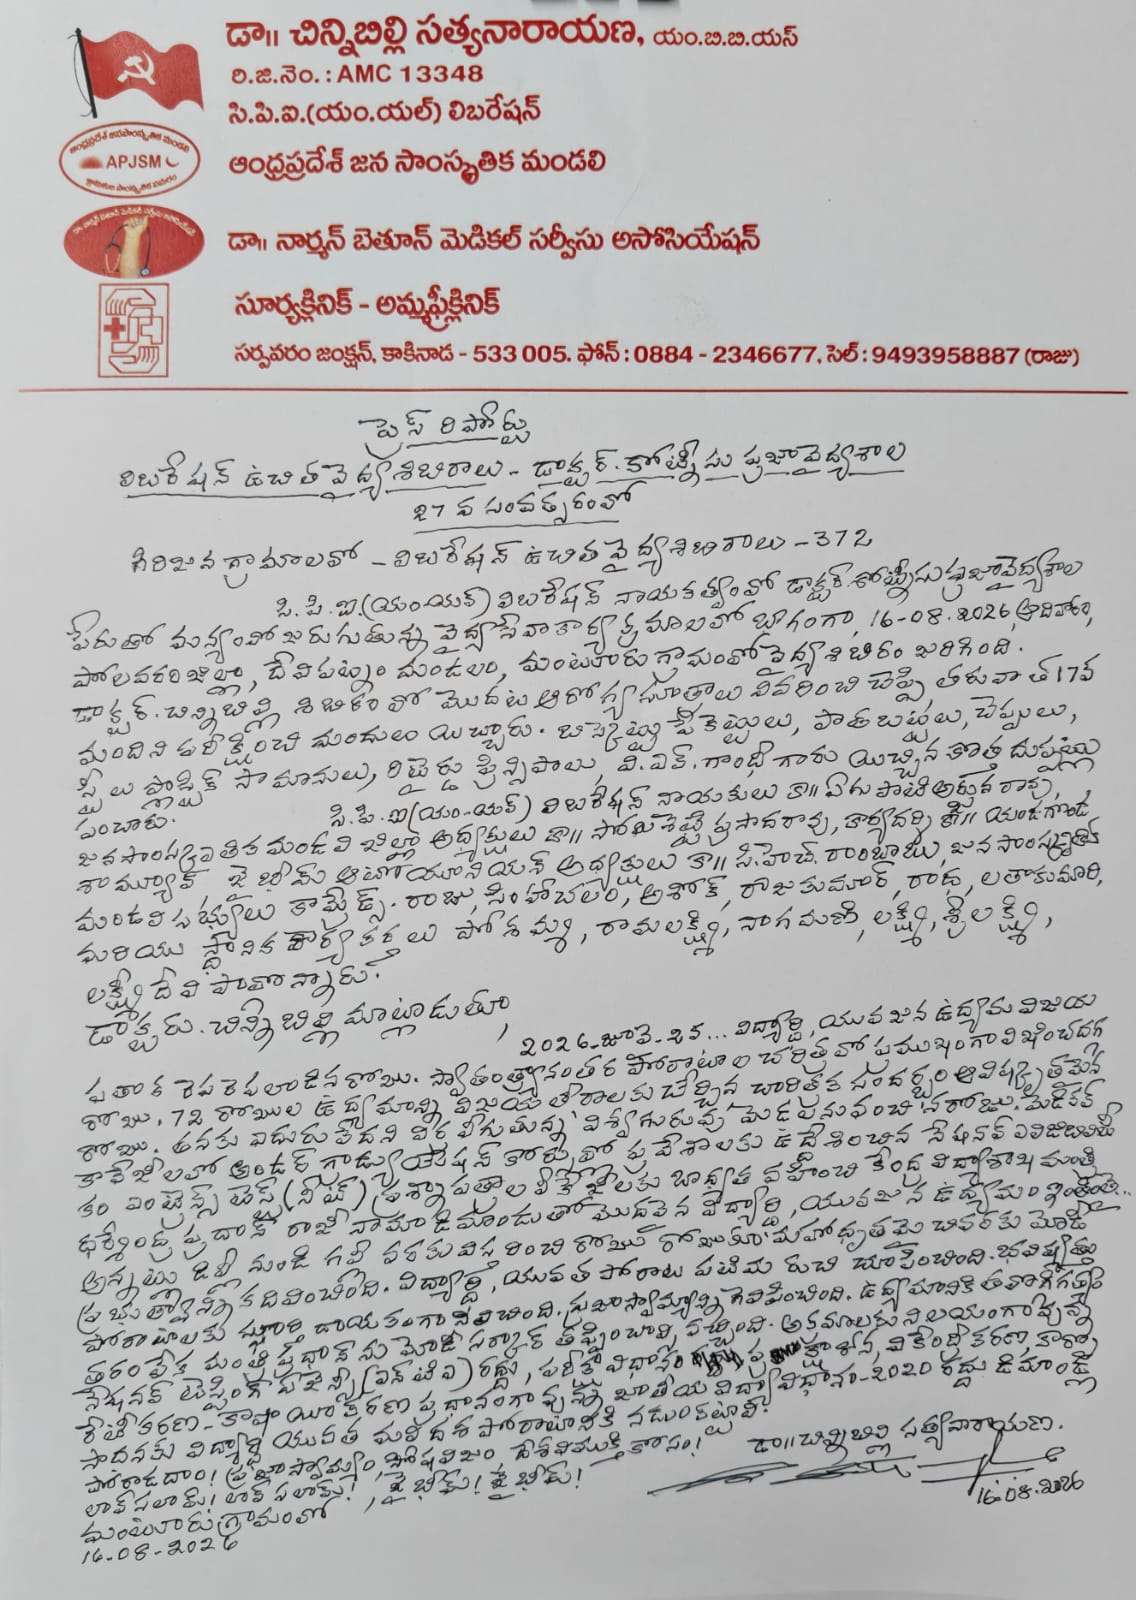 డా౹౹ చిన్నిబిల్లి సత్యనారాయణ, యం.బి.బి.యస్
రి.జి.నెం. : AMC 13348
సి.పి.ఐ.(యం.యల్) లిబరేషన్
ఆంధ్రప్రదేశ్ జన సాంస్కృతిక మండలి
APJSM
డా౹౹ నార్మన్ బెతూన్ మెడికల్ సర్వీసు అసోసియేషన్
సూర్యక్లినిక్ - అమ్మఫ్రీక్లినిక్
సర్పవరం జంక్షన్, కాకినాడ - 533 005. ఫోన్ : 0884 - 2346677, సెల్ : 9493958887 (రాజు)
ప్రెస్ రిపోర్టు
లిబరేషన్ ఉచిత వైద్య శిబిరాలు - డాక్టర్. కోట్నీసు ప్రజా వైద్యశాల
27 వ సంవత్సరంలో
గిరిజన గ్రామాలలో - లిబరేషన్ ఉచిత వైద్య శిబిరాలు - 372
సి. పి. ఐ. (యం-యల్) లిబరేషన్ నాయకత్వంలో డాక్టర్. కోట్నీసు ప్రజా వైద్యశాల
పేరుతో మన్యంలో జరుగుతున్న వైద్య సేవా కార్యక్రమాలలో భాగంగా, 16-08-2026, ఆదివారం,
పోలవరం జిల్లా, దేవిపట్నం మండలం, మంటూరు గ్రామంలో వైద్య శిబిరం జరిగింది.
డాక్టర్. చిన్నిబిల్లి శిబిరంలో మొదట ఆరోగ్య సూత్రాలు వివరించి చెప్పి తరువాత 17వ
మందిని పరీక్షించి మందులు యిచ్చారు. బిస్కెట్లు ప్యాకెట్లు, పాత బట్టలు, చెప్పులు,
స్టీలు ప్లాస్టిక్ సామానులు, రిటైర్డు ప్రిన్సిపాలు, వి. ఎల్. గాంధీ గారు యిచ్చిన కొత్త దుప్పట్లు
పంచారు.
సి. పి. ఐ (యం-యల్) లిబరేషన్ నాయకులు కా౹౹ ఏగుపాటి అర్జున రావు,
జన సాంస్కృతిక మండలి జిల్లా అధ్యక్షులు కా౹౹ ప్రసాదరావు, కార్యదర్శి కా౹౹
జై భీమ్ ఆటోయూనియన్ అధ్యక్షులు కా౹౹ సి. హెచ్. రాంబాబు, జన సాంస్కృతిక
మండలి సభ్యులు కామ్రేడ్స్. రాజు, సింహాచలం, అశోక్, రాజకుమార్, రాధ, లతాకుమారి,
మరియు స్థానిక కార్యకర్తలు పోశమ్మ, రామలక్ష్మి, నాగమణి, లక్ష్మి, శ్రీలక్ష్మి,
లక్ష్మీ దేవి పాల్గొన్నారు.
డాక్టరు. చిన్నిబిల్లి మాట్లాడుతూ,
2026-జూలై-25... విద్యార్థి, యువజన ఉద్యమ విజయ
పతాక రెపరెపలాడిన రోజు. స్వాతంత్ర్యానంతర పోరాటాల చరిత్రలో ప్రముఖంగా లిఖించదగ్గ
రోజు. 72 రోజుల ఉద్యమాన్ని విజయ తీరాలకు చేర్చిన చారిత్రక సందర్భం ఆవిష్కృతమైన
రోజు. తనకు ఎదురులేదని విర్రవీగుతున్న 'విశ్వగురువు' మెడలు వంచిన రోజు. మెడికల్
కాలేజీలలో అండర్ గ్రాడ్యుయేషన్ కోర్సులలో ప్రవేశాలకు ఉద్దేశించిన నేషనల్ ఎలిజిబిలిటీ
కం ఎంట్రెన్స్ టెస్ట్ (నీట్) ప్రశ్నాపత్రాల లీకేజీలకు బాధ్యత వహించి కేంద్ర విద్యాశాఖ మంత్రి
ధర్మేంద్ర ప్రధాన్ రాజీనామా డిమాండుతో మొదలైన విద్యార్థి, యువజన ఉద్యమం ఇంతింతై...
అన్నట్లు ఢిల్లీ నుండి గల్లీ వరకు విస్తరించి రోజు రోజుకూ మహోధృతమై చివరకు మోడీ
ప్రభుత్వాన్ని కదిలించింది. విద్యార్థి, యువత పోరాట పటిమ రుచి చూపించింది. భవిష్యత్తు
పోరాటాలకు స్ఫూర్తి దాయకంగా నిలిచింది. ప్రజాస్వామ్యాన్ని గెలిపించింది. ఉద్యమానికి తలొగ్గక
తప్పలేక మంత్రి ప్రధాన్ ను మోడీ సర్కార్ తప్పించాల్సి వచ్చింది. అక్రమాలకు నిలయంగా వున్న
నేషనల్ టెస్టింగ్ ఏజెన్సీ (ఎన్ టి ఏ) రద్దు, పరీక్షా విధానం ప్రక్షాళన, వికేంద్రీకరణ, కార్పొ
రేటీకరణ - కాషాయీకరణ ప్రధానంగా వున్న జాతీయ విద్యా విధానం-2020 రద్దు డిమాండ్ల
సాధనకు విద్యార్థి యువత మలిదశ పోరాటానికి నడుంకట్టాలి.
పోరాడదాం! ప్రజాస్వామ్యం, సోషలిజం దేశ విముక్తి కోసం!
లాల్ సలామ్! లాల్ సలామ్!, జై భీమ్! జై భీమ్!
డా౹౹ చిన్నిబిల్లి సత్యనారాయణ.
16-08-2026
మంటూరు గ్రామంలో
16-08-2026